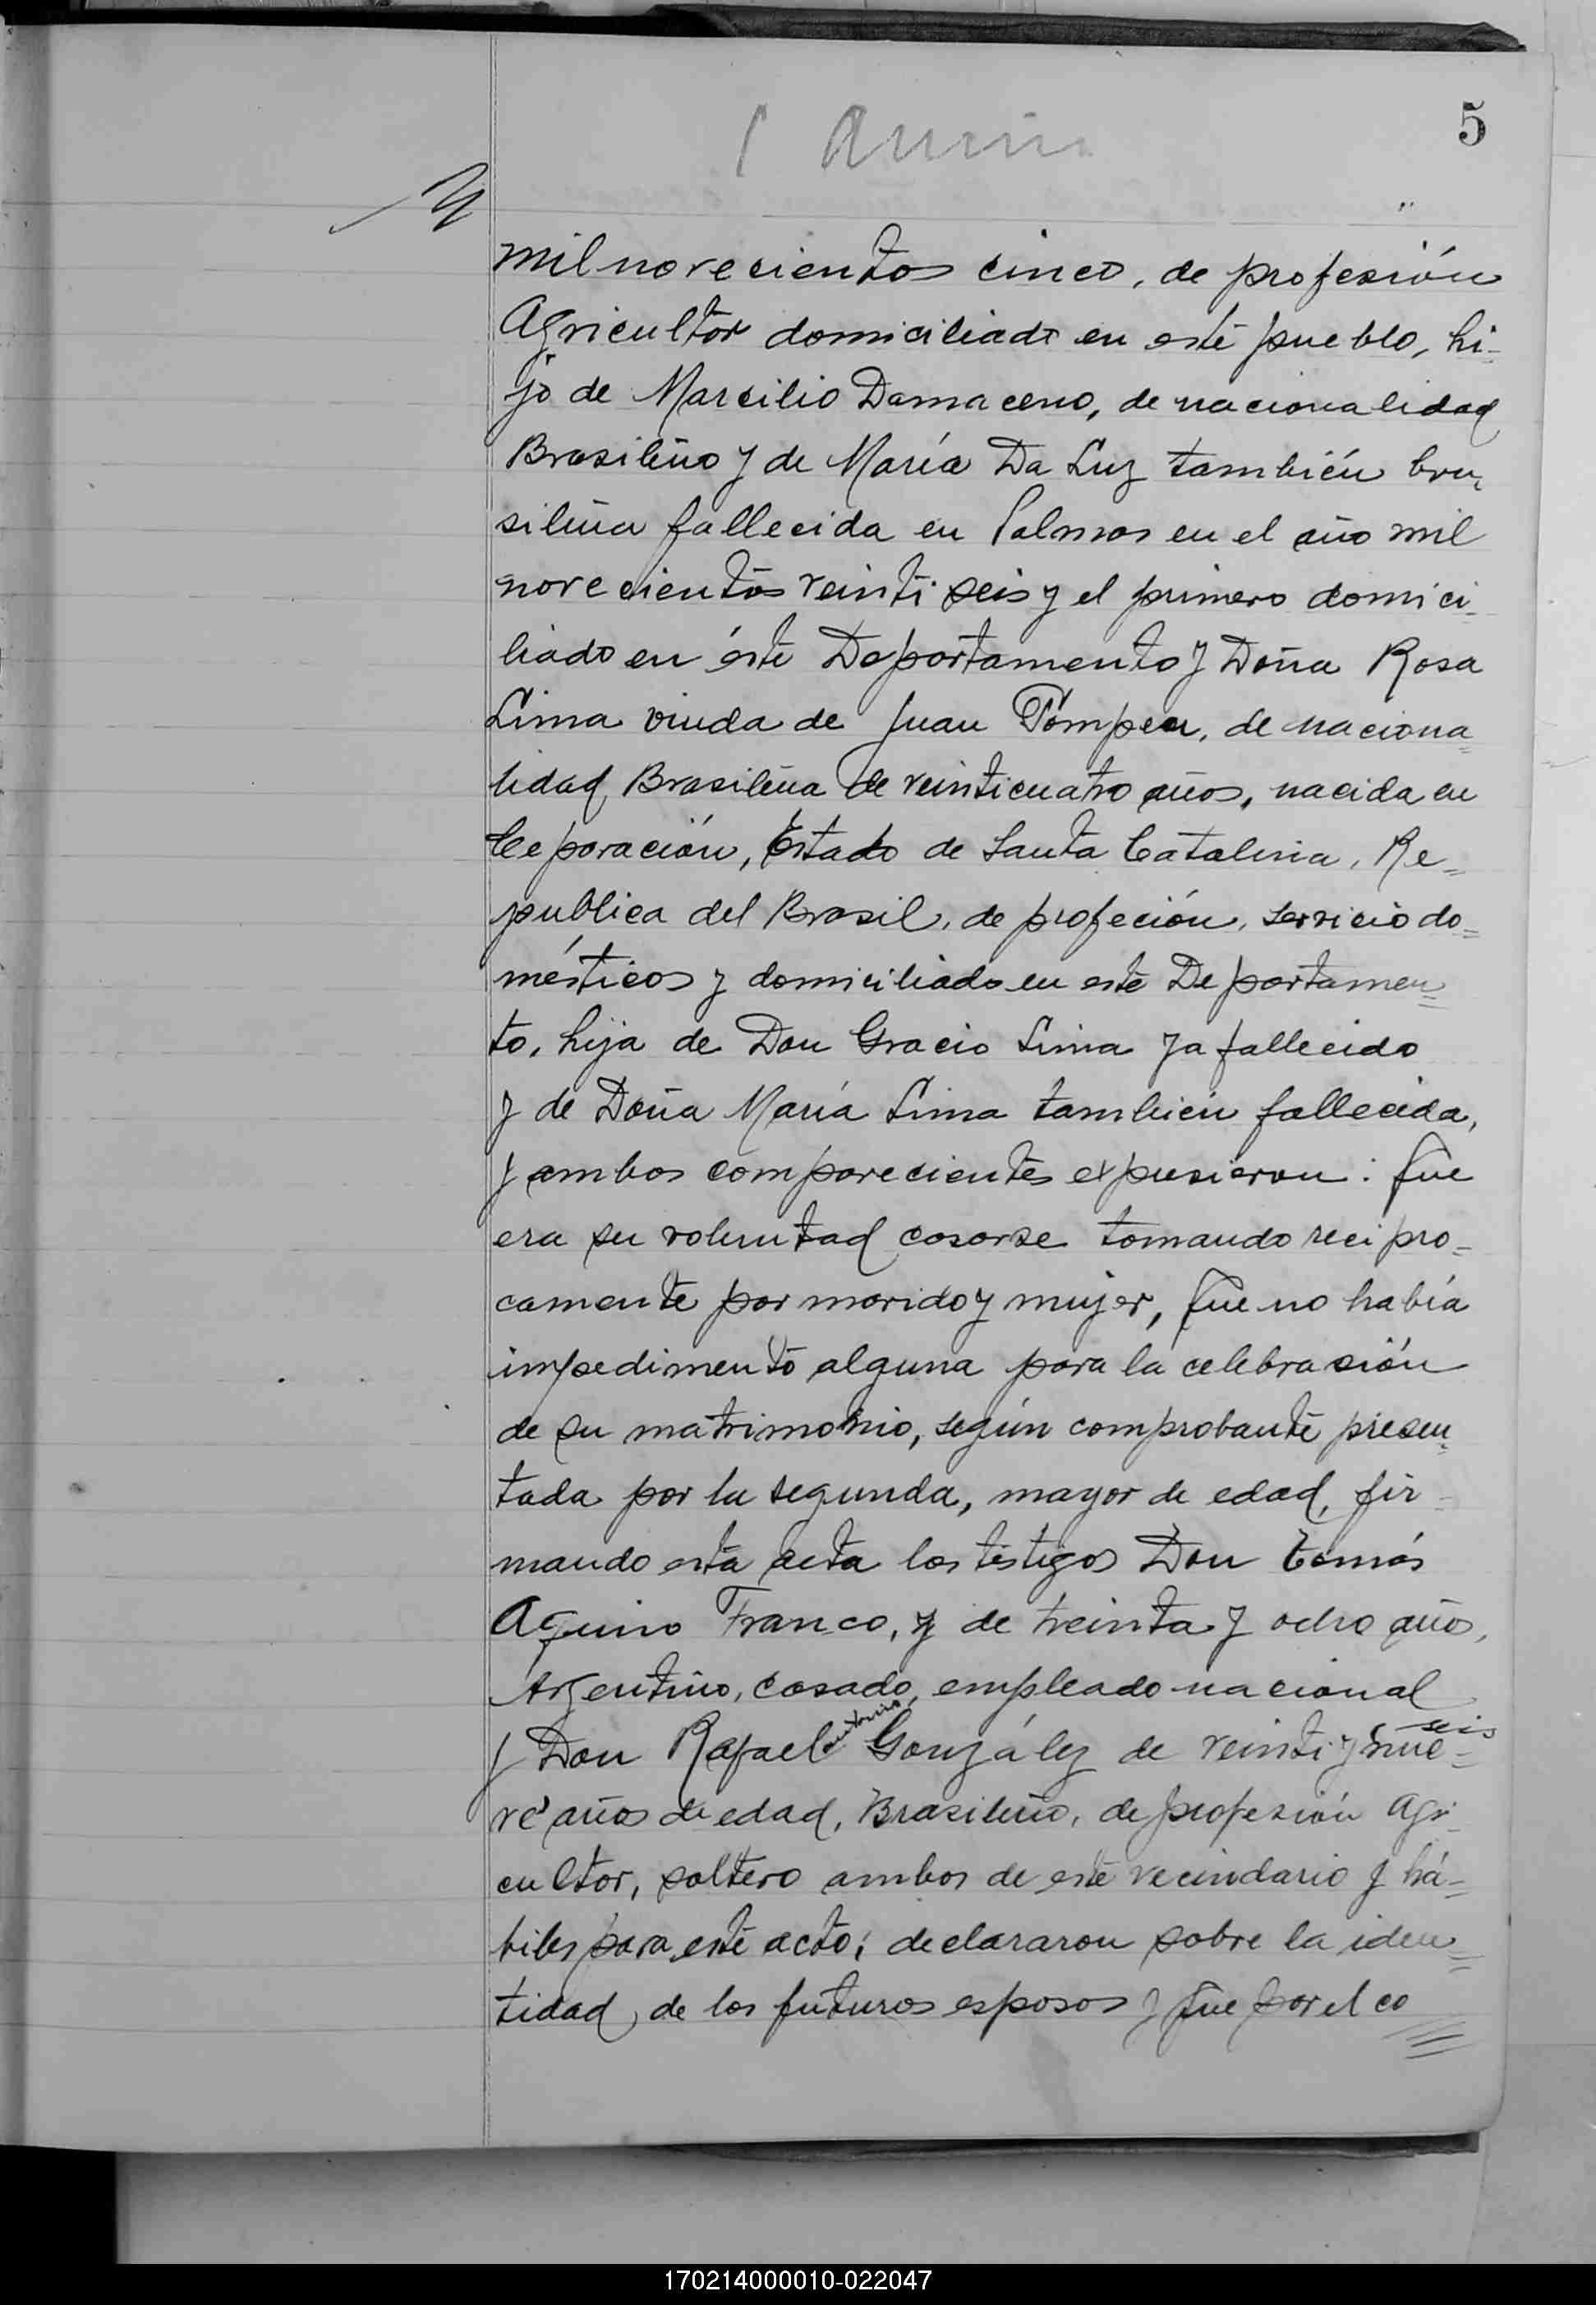 5
mil novecientos cinco, de profesión
Agricultor domiciliado en esté pueblo, hi-
jo de Marcilio Damaceno, de nacionalidad
Brasileño y de María Da Luz también bra-
sileña fallecida en Palmas en el año mil
novecientos veinti seis y el primero domici-
liado en éste Departamento y Doña Rosa
Lima viuda de Juan Pompeu, de naciona=
lidad Brasileña de veinticuatro años, nacida en
Ceporación, Estado de Santa Catalina, Re=
publica del Brasil, de profeción, servicio do=
mésticos y domiciliado en esté Departamen=
to, hija de Don Gracio Lima ya fallecido
y de Doña María Lima también fallecida,
y ambos comparecientes expusieron: que
era su voluntad casarse tomando recipro=
camente por marido y mujer, que no había
impedimento alguna para la celebrasión
de su matrimonio, según comprobante presen=
tada por la segunda, mayor de edad, fir-
mando esta acta los testigos Don Tomás
Aquino Franco, y de treinta y ocho años,
Argentino, casado, empleado nacional
y Don Rafael Antonio González de veinti y nue= seis
ve años de edad, Brasileño, de profesión Agri-
cultor, soltero ambos de esté vecindario y há=
biles para esté acto; declararon sobre la iden=
tidad, de los futuros esposos y que por el co
170214000010-022047